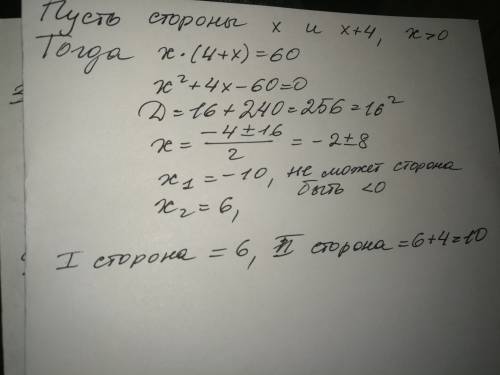 Пусть стороны x и x+4, x>0
Тогда x·(4+x)=60
x²+4x-60=0
D=16+240=256=16²
x=(-4±16)/2=-2±8
x₁=-10, не может сторона
быть <0
x₂=6,
I сторона = 6, II сторона =6+4=10